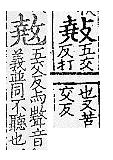 五交
反打
也又苦
交反
五交反两聲音
義並同不聽也